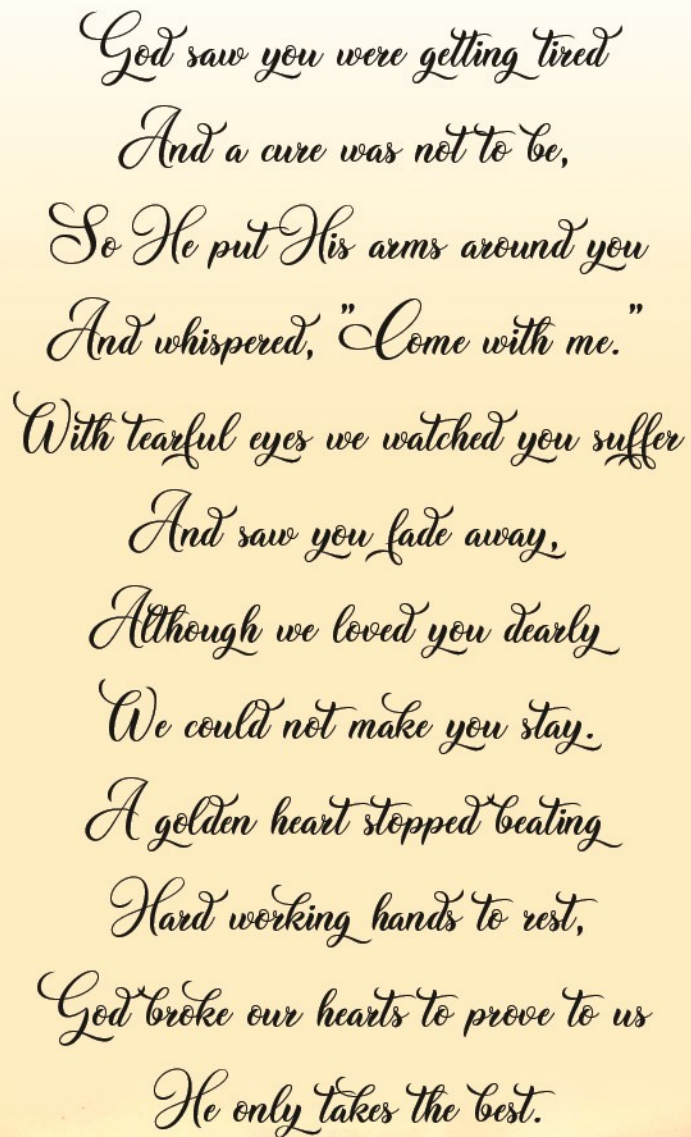 God saw you were getting tired
And a cure was not to be,
So He put His arms around you
And whispered, "Come with me."
With tearful eyes we watched you suffer
And saw you fade away,
Although we loved you dearly
We could not make you stay.
A golden heart stopped beating
Hard working hands to rest,
God broke our hearts to prove to us
He only takes the best.